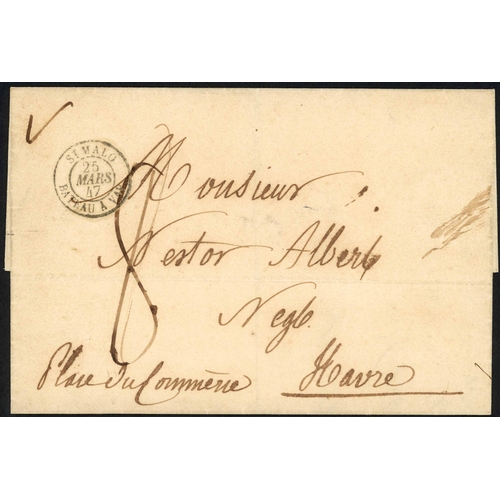 ST MALO
25
MARS
47
BATEAU A VAP.
8
Monsieur
Nestor Albert
Negt.
Place du Commerce Havre